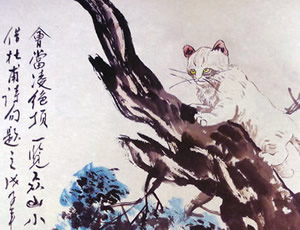 會當凌絕頂一覽众山小
借杜甫詩句題之戊